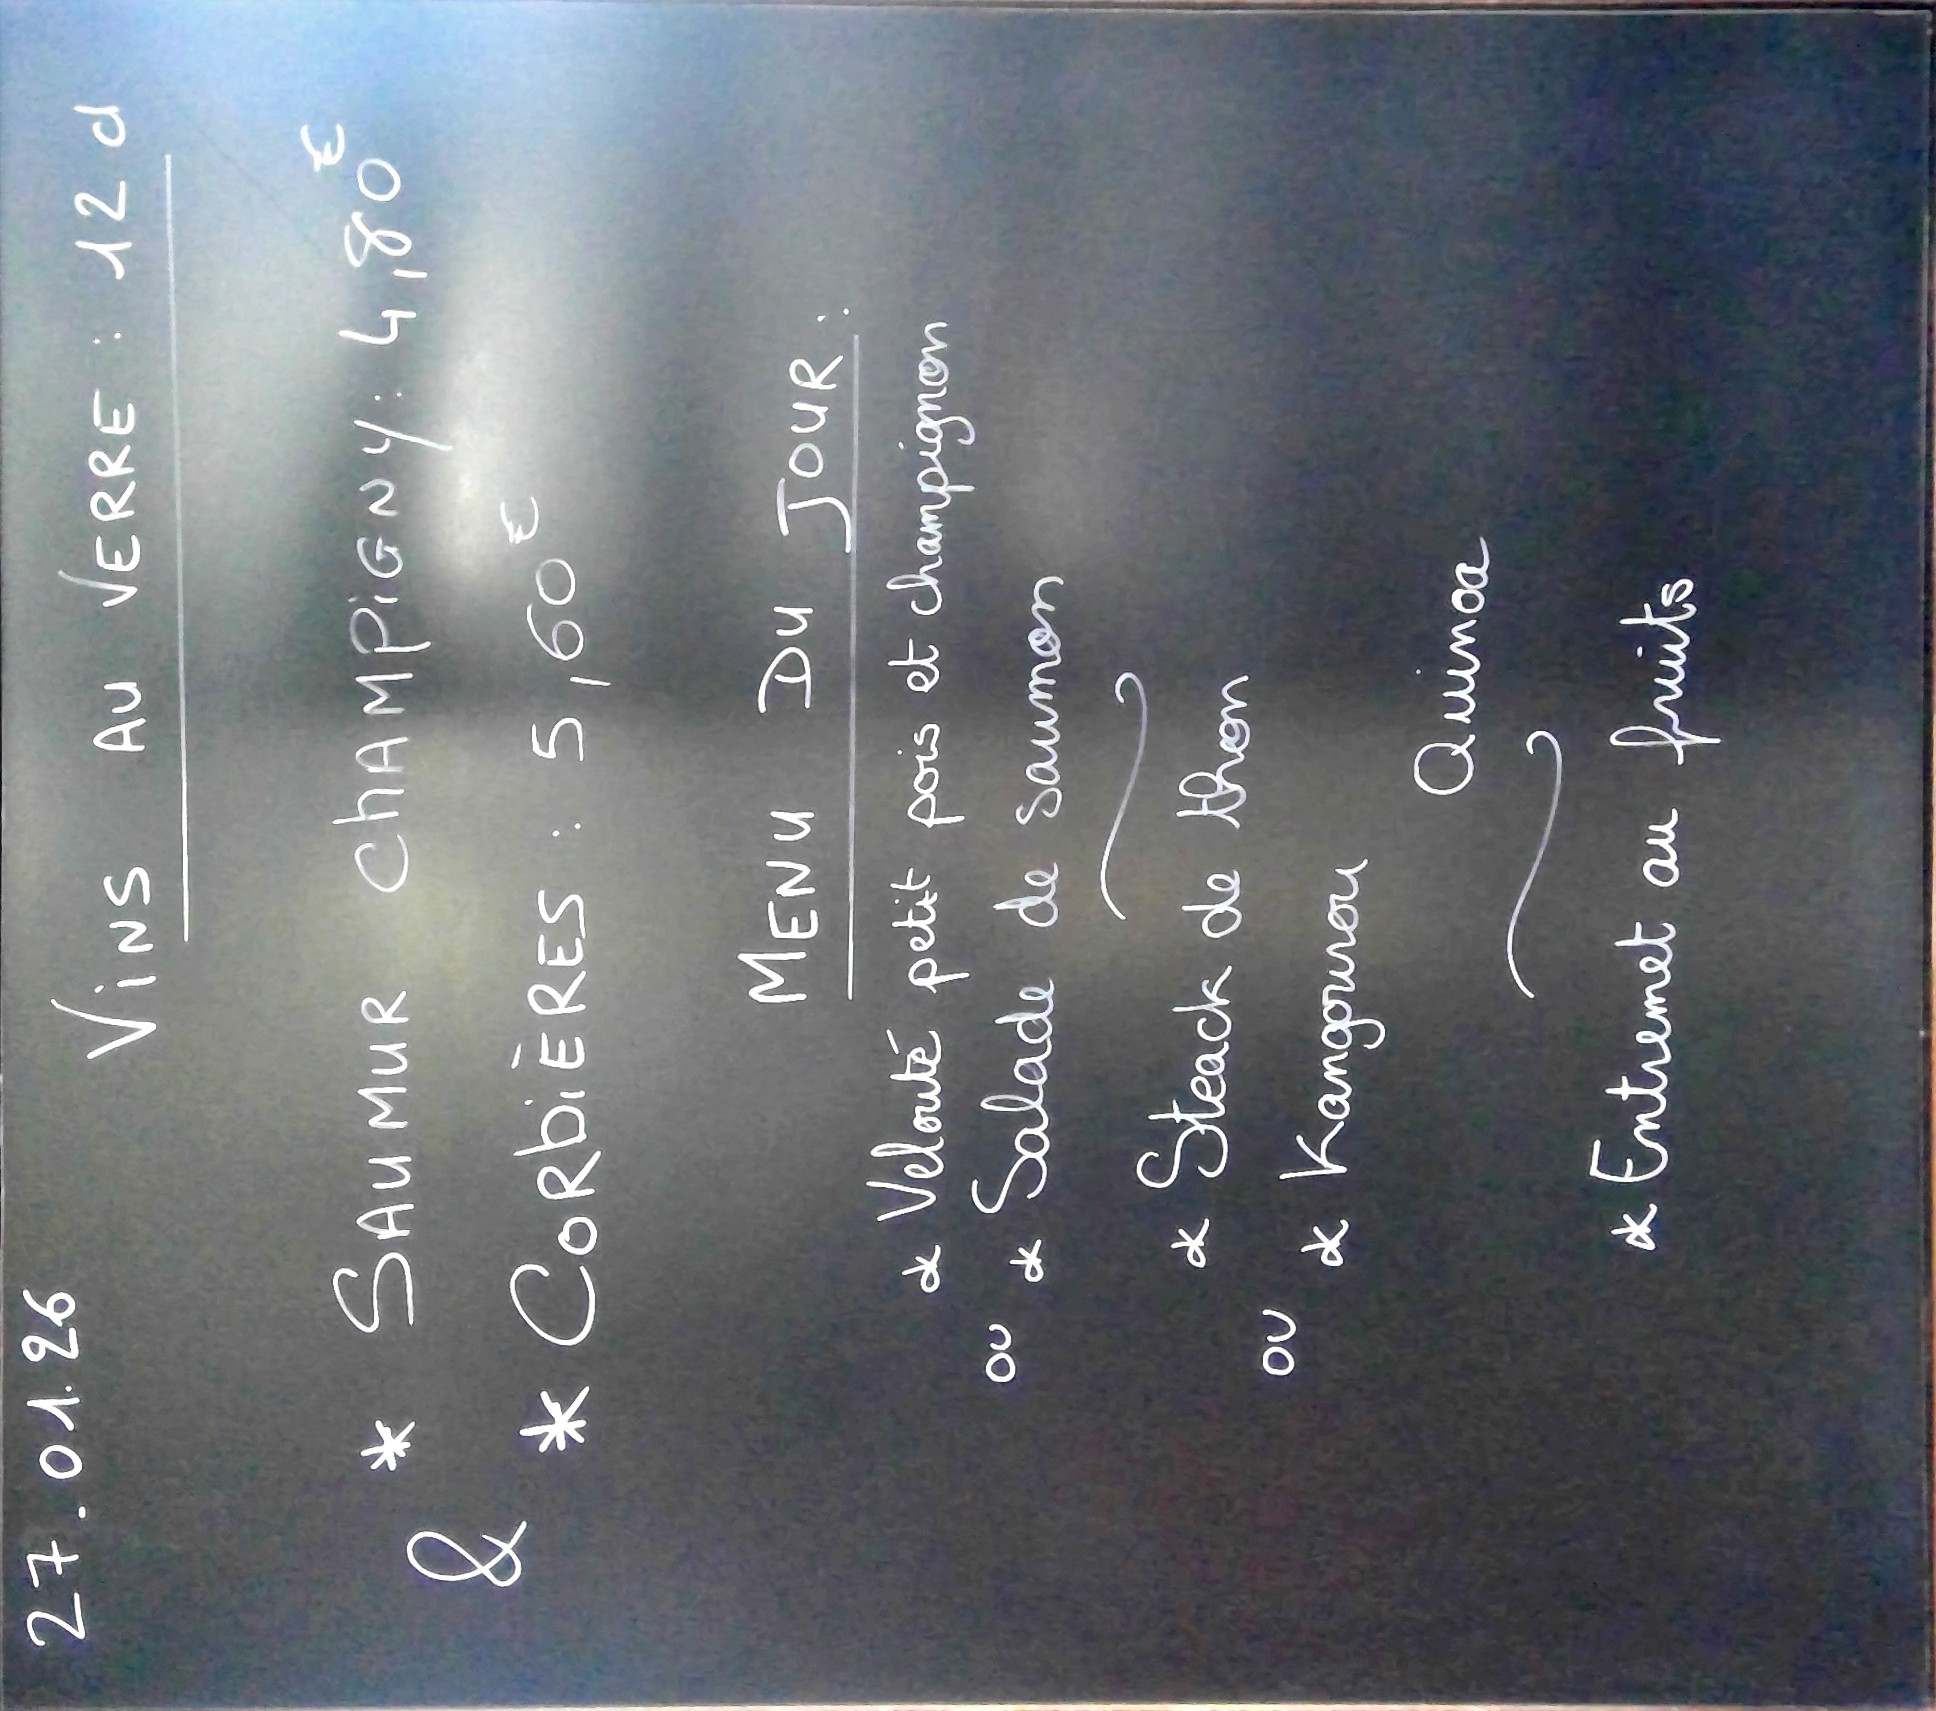 27.01.26
VINS AU VERRE : 12 cl
* SAUMUR CHAMPIGNY : 4,80€
&
* CORBIÈRES : 5,60€
MENU DU JOUR :
* Velouté petit pois et champignon
ou
* Salade de saumon
* Steack de thon
ou
* Kangourou
Quinoa
* Entremet au fruits